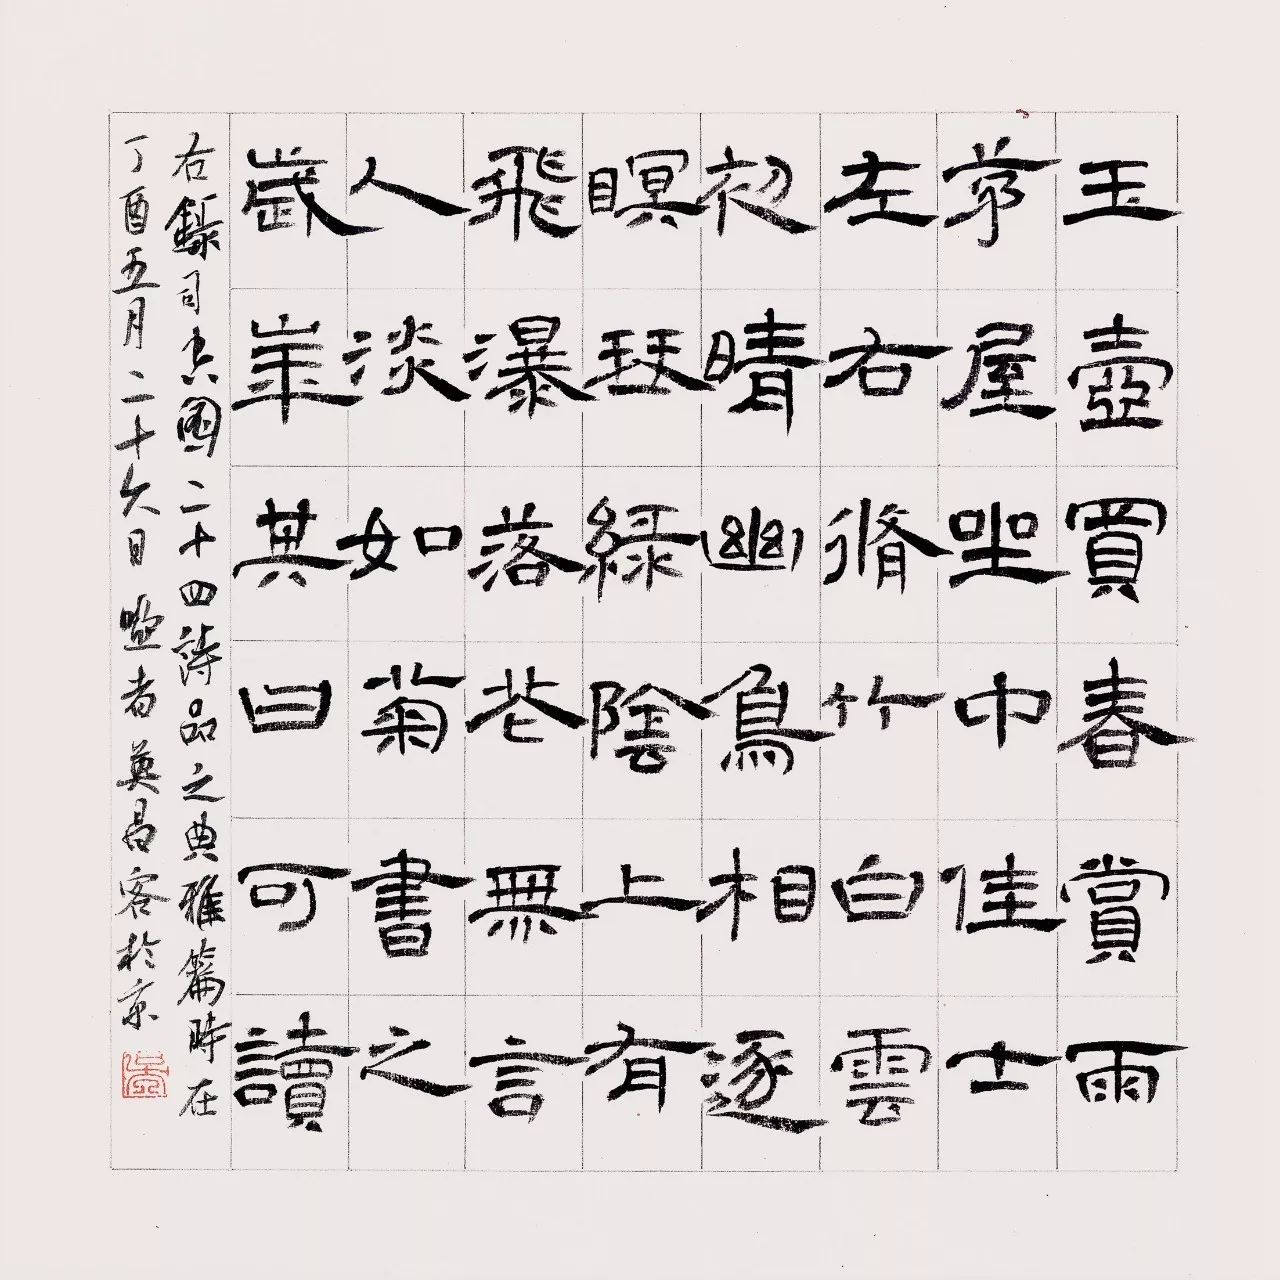 玉壺買春賞雨
茅屋坐中佳士
左右脩竹白雲
初晴幽鳥相逐
瞑琴綠陰上有
飛瀑落花無言
人淡如菊書之
歲華其曰可讀
右錄司空圖二十四詩品之典雅篇時在
丁酉五月二十六日 者英昌客於京